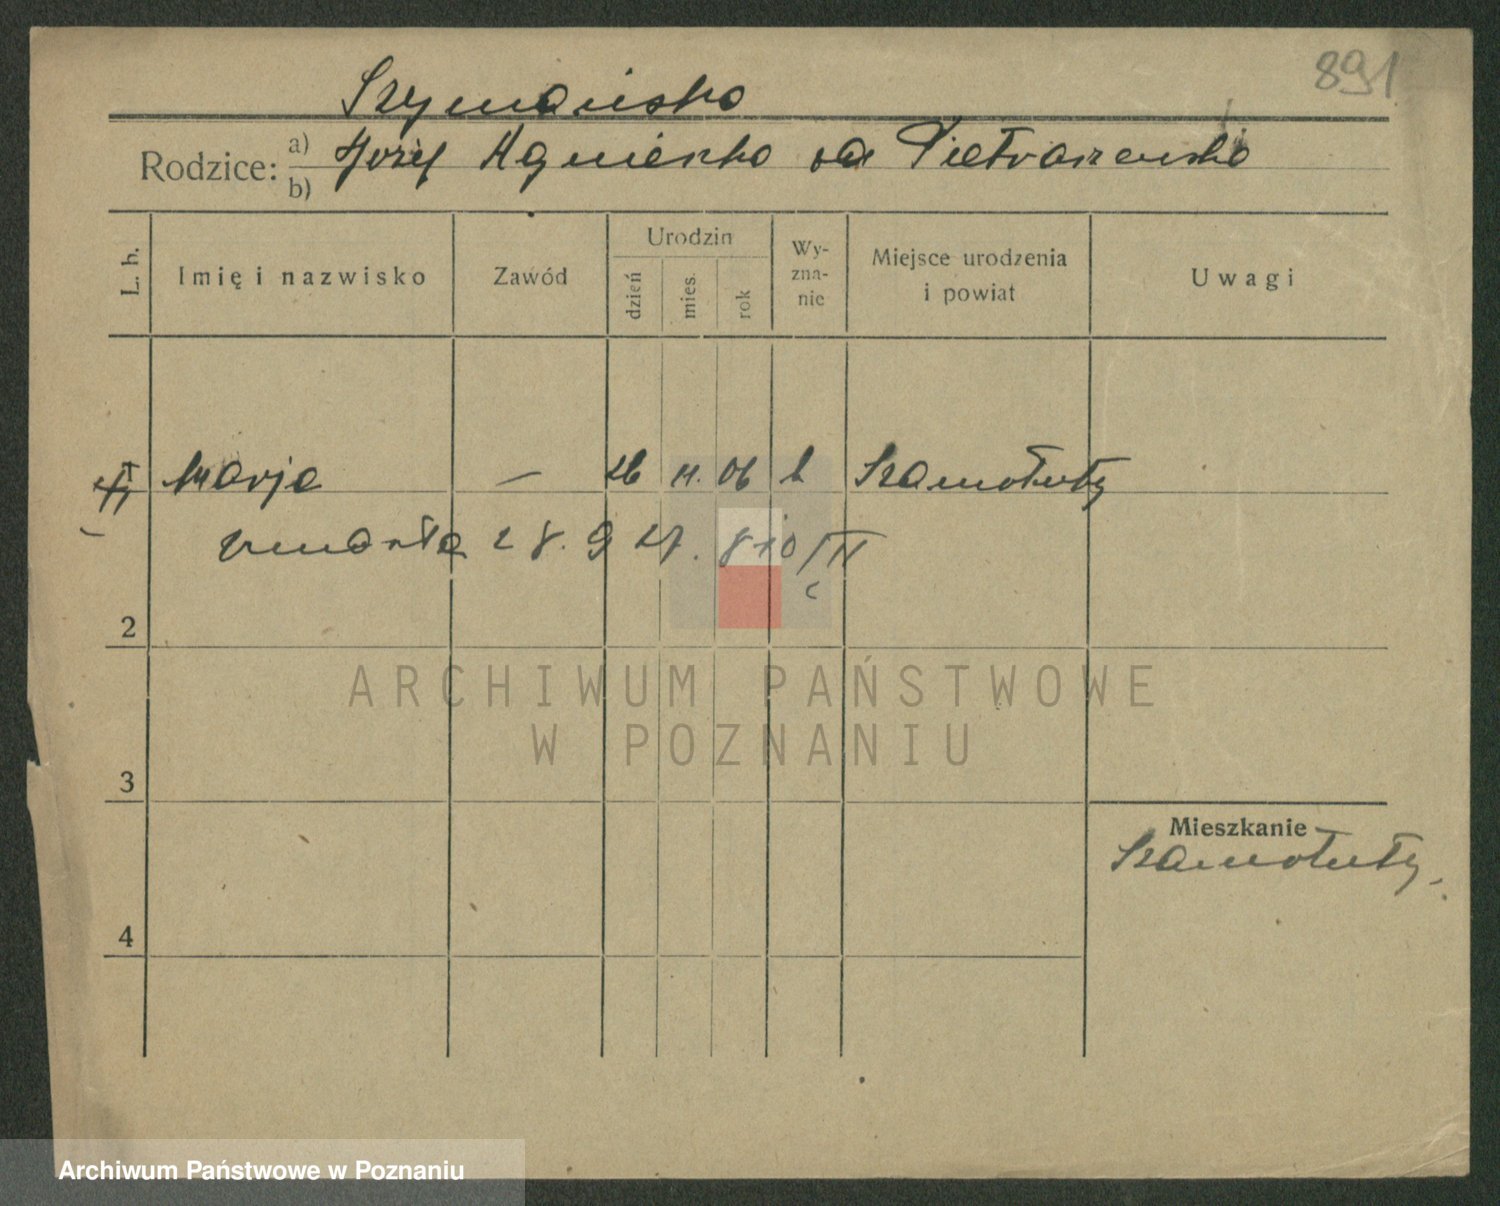 891
Szymańska
Rodzice: a) b) Józef Agnieszka od Pietraszewska
L. b.
Imię i nazwisko
Zawód
Urodzin
dzień
mies.
rok
Wyznanie
Miejsce urodzenia i powiat
Uwagi
Marja — 26 11. 06 k Szamotuły
umarła 28. 9 27. 810 III
2
3
Mieszkanie
Szamotuły.
4
ARCHIWUM PAŃSTWOWE
W POZNANIU
Archiwum Państwowe w Poznaniu